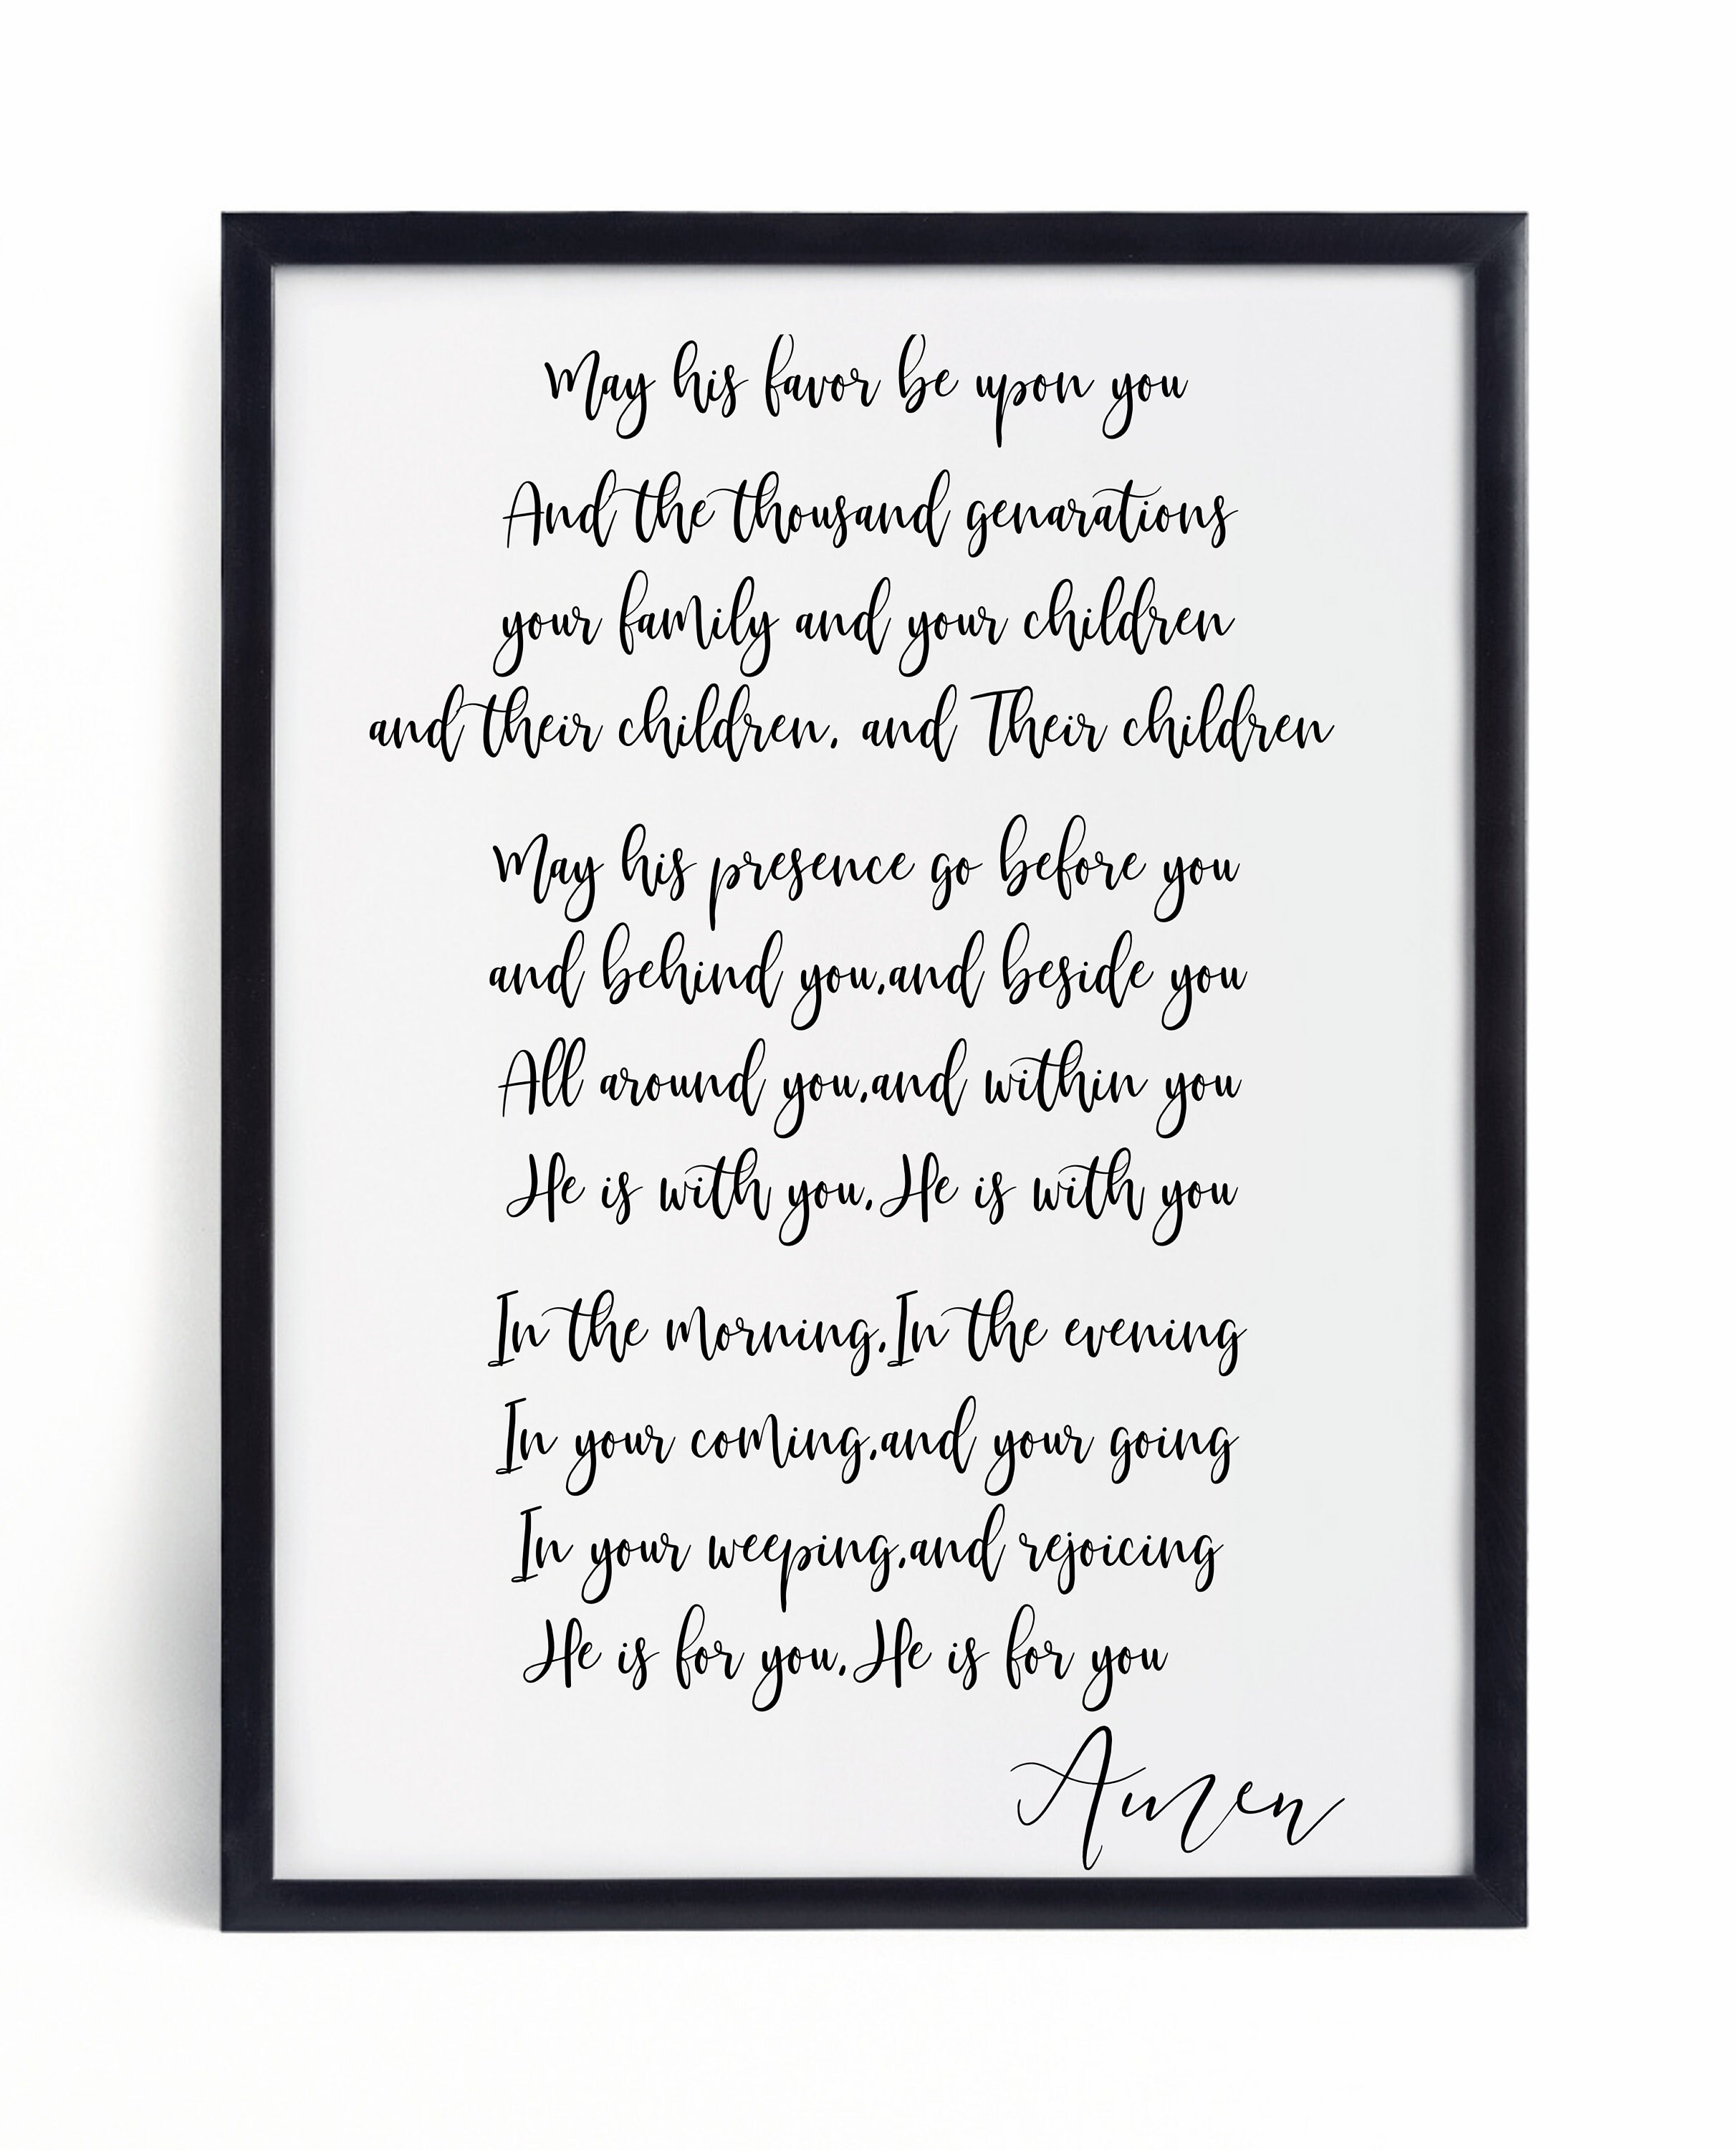 May his favor be upon you
And the thousand genarations
your family and your children
and their children, and Their children
May his presence go before you
and behind you,and beside you
All around you,and within you
He is with you,He is with you
In the morning,In the evening
In your coming,and your going
In your weeping,and rejoicing
He is for you,He is for you
Amen